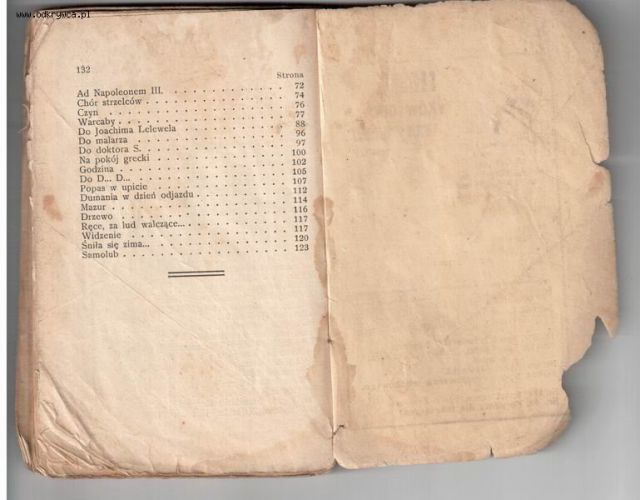 www.odkrywca.pl
132
Strona
Ad Napoleonem III. 72
Chór strzelców 74
Czyn 76
Warcaby 77
Do Joachima Lelewela 88
Do malarza 96
Do doktora S. 97
Na pokój grecki 100
Godzina 102
Do D... D... 105
Popas w upicie 107
Dumania w dzień odjazdu 112
Mazur 114
Drzewo 116
Ręce, za lud walczące... 117
Widzenie 117
Śniła się zima... 120
Samolub 123